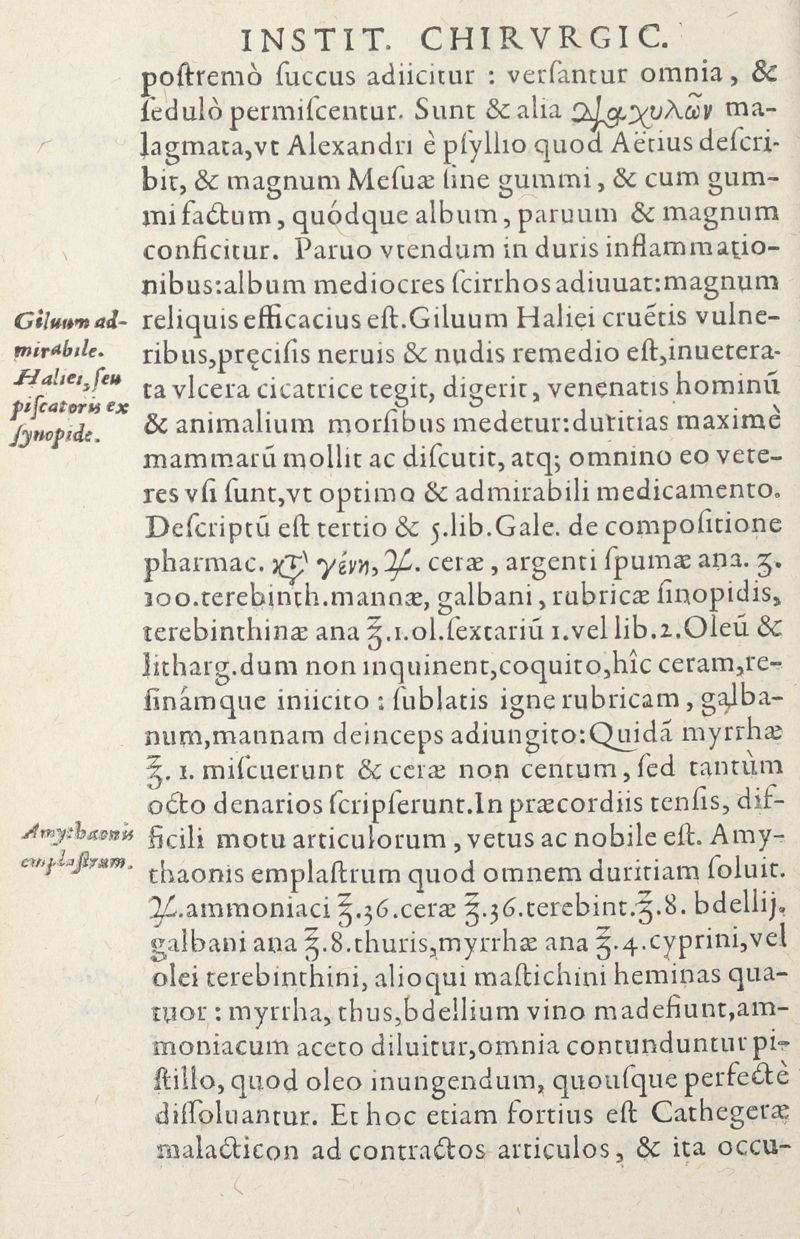 INSTIT. CHIRVRGIC.
poſtremò ſuccus adiicitur : verſantur omnia, &
ſedulò permiſcentur. Sunt & alia διαχυλῶν ma-
lagmata,vt Alexandri è pſyllio quod Aëtius deſcri-
bit, & magnum Meſuæ ſine gummi, & cum gum-
mi factum, quódque album, paruum & magnum
conficitur. Paruo vtendum in duris inflammatio-
nibus:album mediocres ſcirrhos adiuuat:magnum
Giluum ad-
mirabile.
Haliei, ſeu
piſcatoris ex
ſynopide.
reliquis efficacius eſt.Giluum Haliei cruétis vulne-
ribus,pręciſis neruis & nudis remedio eſt,inuetera-
ta vlcera cicatrice tegit, digerit, venenatis hominū
& animalium morſibus medetur:duritias maximè
mammarū mollit ac diſcutit, atq; omnino eo vete-
res vſi ſunt,vt optimo & admirabili medicamento.
Deſcriptū eſt tertio & 5.lib.Gale. de compoſitione
pharmac. κτ̀ γένη, ℞. ceræ, argenti ſpumæ ana. ʒ.
100.terebinth.mannæ, galbani, rubricæ ſinopidis,
terebinthinæ ana ℥.1.ol.ſextariū 1.vel lib.2.Oleū &
litharg.dum non inquinent,coquito,hîc ceram,re-
ſinámque iniicito : ſublatis igne rubricam, galba-
num,mannam deinceps adiungito:Quidā myrrhæ
℥. 1. miſcuerunt & ceræ non centum, ſed tantùm
octo denarios ſcripſerunt.In præcordiis tenſis, dif-
Amythaonis
emplaſtrum.
ficili motu articulorum, vetus ac nobile eſt. Amy-
thaonis emplaſtrum quod omnem duritiam ſoluit.
℞.ammoniaci ℥.36.ceræ ℥.36.terebint.℥.8. bdellij,
galbani ana ℥.8.thuris,myrrhæ ana ℥.4.cyprini,vel
olei terebinthini, alioqui maſtichini heminas qua-
tuor : myrrha, thus,bdellium vino madefiunt,am-
moniacum aceto diluitur,omnia contunduntur pi-
ſtillo, quod oleo inungendum, quouſque perfectè
diſſoluantur. Et hoc etiam fortius eſt Cathegeræ
malacticon ad contractos articulos, & ita occu-